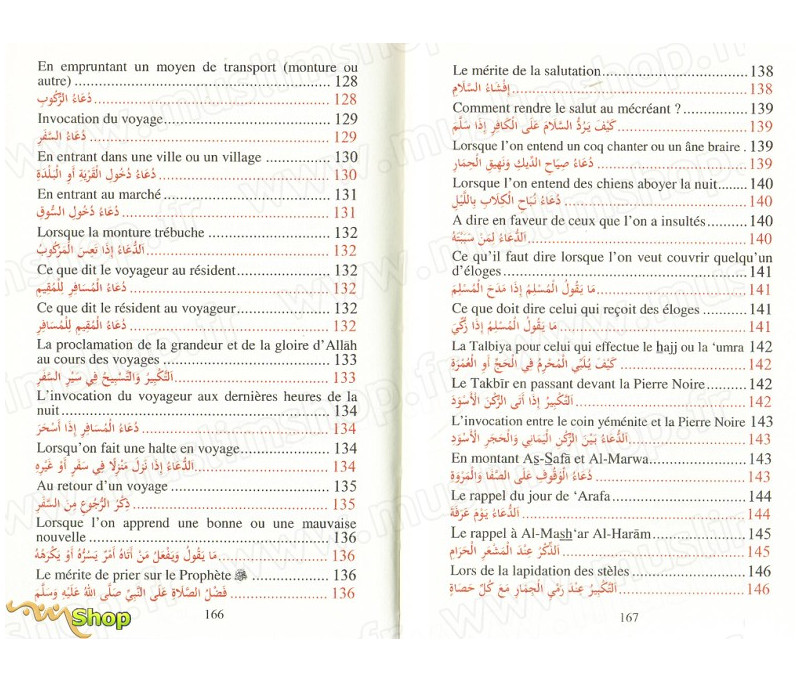 En empruntant un moyen de transport (monture ou
autre) 128
دُعَاءُ الرُّكُوبِ 128
Invocation du voyage 129
دُعَاءُ السَّفَرِ 129
En entrant dans une ville ou un village 130
دُعَاءُ دُخُولِ الْقَرْيَةِ أَوِ الْبَلْدَةِ 130
En entrant au marché 131
دُعَاءُ دُخُولِ السُّوقِ 131
Lorsque la monture trébuche 132
اَلدُّعَاءُ إِذَا تَعِسَ الْمَرْكُوبُ 132
Ce que dit le voyageur au résident 132
دُعَاءُ الْمُسَافِرِ لِلْمُقِيمِ 132
Ce que dit le résident au voyageur 132
دُعَاءُ الْمُقِيمِ لِلْمُسَافِرِ 132
La proclamation de la grandeur et de la gloire d'Allāh
au cours des voyages 133
اَلتَّكْبِيرُ وَالتَّسْبِيحُ فِي سَيْرِ السَّفَرِ 133
L'invocation du voyageur aux dernières heures de la
nuit 134
دُعَاءُ الْمُسَافِرِ إِذَا أَسْحَرَ 134
Lorsqu'on fait une halte en voyage 134
اَلدُّعَاءُ إِذَا نَزَلَ مَنْزِلًا فِي سَفَرٍ أَوْ غَيْرِهِ 134
Au retour d'un voyage 135
ذِكْرُ الرُّجُوعِ مِنَ السَّفَرِ 135
Lorsque l'on apprend une bonne ou une mauvaise
nouvelle 136
مَا يَقُولُ وَيَفْعَلُ مَنْ أَتَاهُ أَمْرٌ يَسُرُّهُ أَوْ يَكْرَهُهُ 136
Le mérite de prier sur le Prophète ﷺ 136
فَضْلُ الصَّلَاةِ عَلَى النَّبِيِّ صَلَّى اللهُ عَلَيْهِ وَسَلَّمَ 136
166
Shop
Le mérite de la salutation 138
إِفْشَاءُ السَّلَامِ 138
Comment rendre le salut au mécréant ? 139
كَيْفَ يَرُدُّ السَّلَامَ عَلَى الْكَافِرِ إِذَا سَلَّمَ 139
Lorsque l'on entend un coq chanter ou un âne braire . 139
دُعَاءُ صِيَاحِ الدِّيكِ وَنَهِيقِ الْحِمَارِ 139
Lorsque l'on entend des chiens aboyer la nuit 140
دُعَاءُ نُبَاحِ الْكِلَابِ بِاللَّيْلِ 140
A dire en faveur de ceux que l'on a insultés 140
اَلدُّعَاءُ لِمَنْ سَبَبْتَهُ 140
Ce qu'il faut dire lorsque l'on veut couvrir quelqu'un
d'éloges 141
مَا يَقُولُ الْمُسْلِمُ إِذَا مَدَحَ الْمُسْلِمَ 141
Ce que doit dire celui qui reçoit des éloges 141
مَا يَقُولُ الْمُسْلِمُ إِذَا زُكِّيَ 141
La Talbiya pour celui qui effectue le hajj ou la 'umra 142
كَيْفَ يُلَبِّي الْمُحْرِمُ فِي الْحَجِّ أَوِ الْعُمْرَةِ 142
Le Takbīr en passant devant la Pierre Noire 142
اَلتَّكْبِيرُ إِذَا أَتَى الرُّكْنَ الْأَسْوَدَ 142
L'invocation entre le coin yéménite et la Pierre Noire 143
اَلدُّعَاءُ بَيْنَ الرُّكْنِ الْيَمَانِي وَالْحَجَرِ الْأَسْوَدِ 143
En montant As-Safā et Al-Marwa 143
دُعَاءُ الْوُقُوفِ عَلَى الصَّفَا وَالْمَرْوَةِ 143
Le rappel du jour de 'Arafa 144
اَلدُّعَاءُ يَوْمَ عَرَفَةَ 144
Le rappel à Al-Mash'ar Al-Harām 145
اَلذِّكْرُ عِنْدَ الْمَشْعَرِ الْحَرَامِ 145
Lors de la lapidation des stèles 146
اَلتَّكْبِيرُ عِنْدَ رَمْيِ الْجِمَارِ مَعَ كُلِّ حَصَاةٍ 146
167